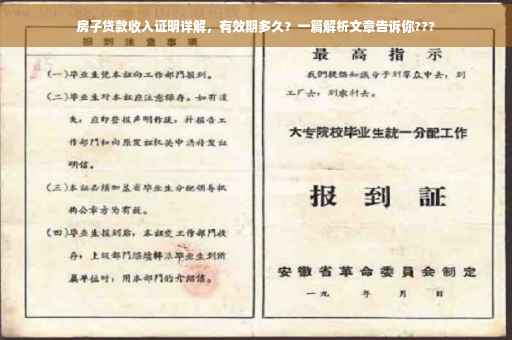 房子贷款收入证明详解，有效期多久？一篇解析文章告诉你???
报到注意事项
(一)毕业生凭本証向工作部門报到。
(二)毕业生对本証应注意保存。如有遺
失，应即登报声明作废，并报告工
作部門和向原发証机关申請补发証
明信。
(三)本証必须加盖省毕业生分配领导机
构公章方为有效。
(四)毕业生报到后，本証交工作部門收
存；上级部門
单位时，用本部門的介绍信。
最高指示
我們提倡知識分子到羣众中去，到
工厂去，到农村去。
大专院校毕业生統一分配工作
报到証
安徽省革命委員会制定
一九 年 月 日